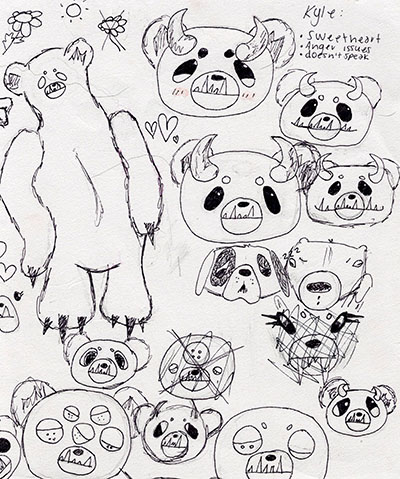 Kyle:
• Sweetheart
• Anger issues
• doesn't speak